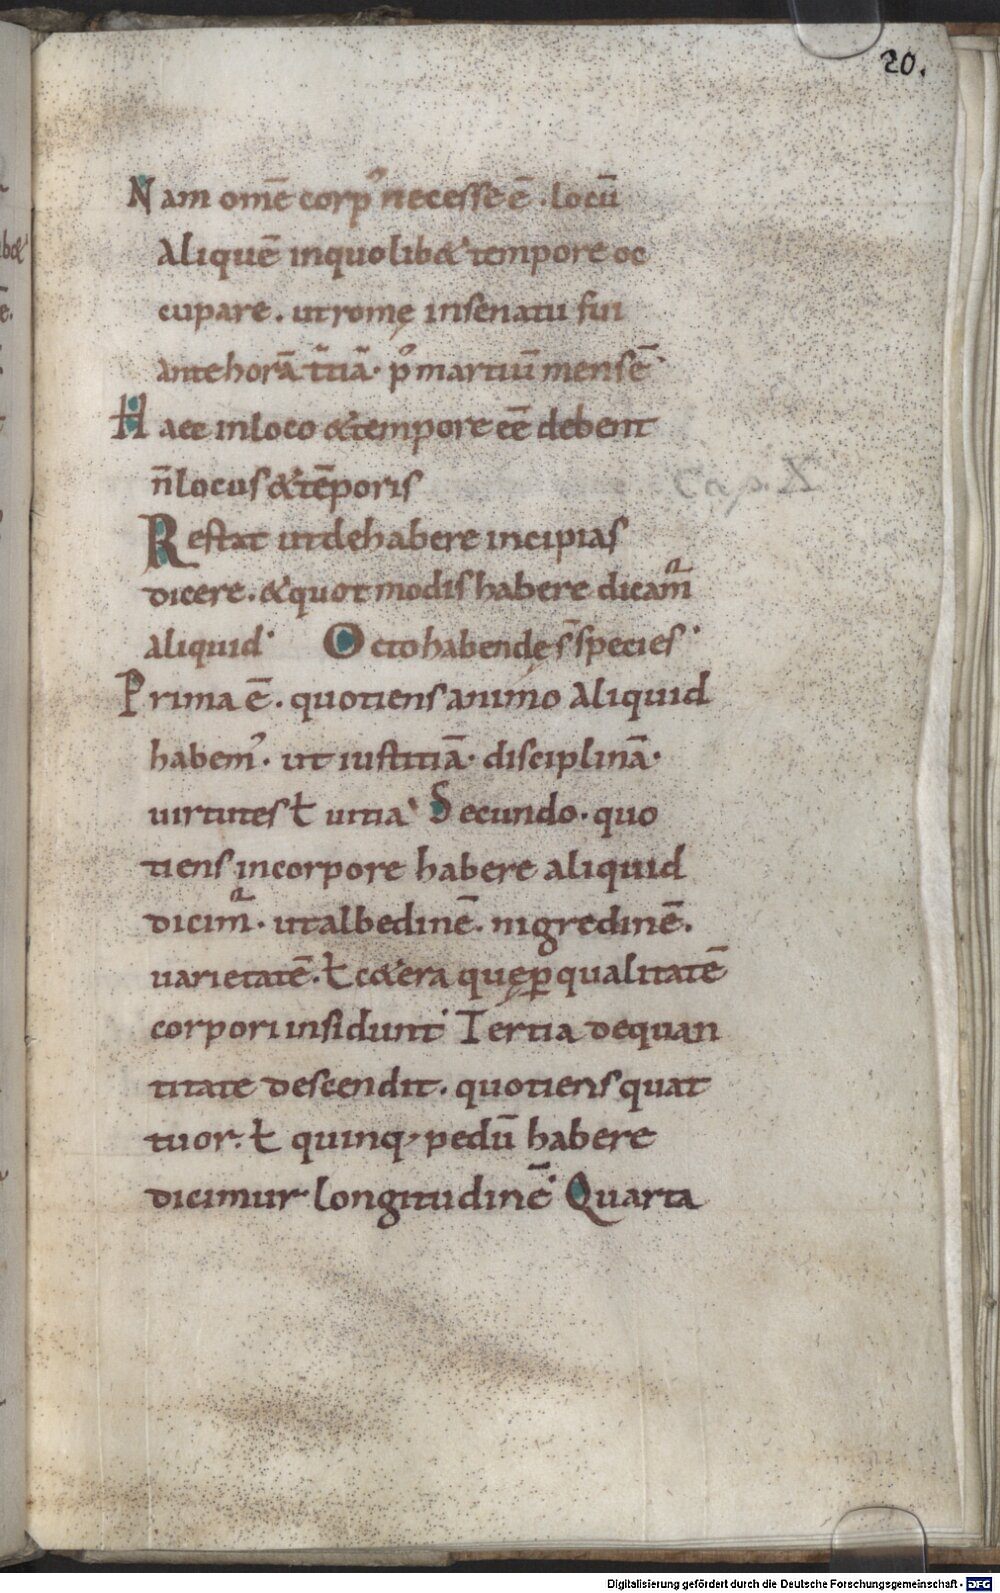 20.
Nam om̄e corpꝰ necesse ē . locū
Aliquē inquolib& tempore oc
cupare . ut romę insenatu fui
ante horā t̄tiā . pꝰ martiū mensē
Haec inloco & tempore eē debent
n̄ locus & tēporis
Cap. X
Restat ut dehabere incipias
dicere . & quot modis habere dicam̄
aliquid . Octo habendę s̄ species .
Prima ē . quotiens animo aliquid
habemꝰ . ut iustitiā . disciplinā .
uirtutes ł uitia . Secundo . quo
tiens incorpore habere aliquid
dicim̄ . ut albedinē . nigredinē .
uarietatē . ł c&era quę ꝑ qualitatē
corpori insidunt . Tertia dequan
titate descendit . quotiens quat
tuor . ł quinq; pedū habere
dicimur longitudinē . Quarta
Digitalisierung gefördert durch die Deutsche Forschungsgemeinschaft - DFG